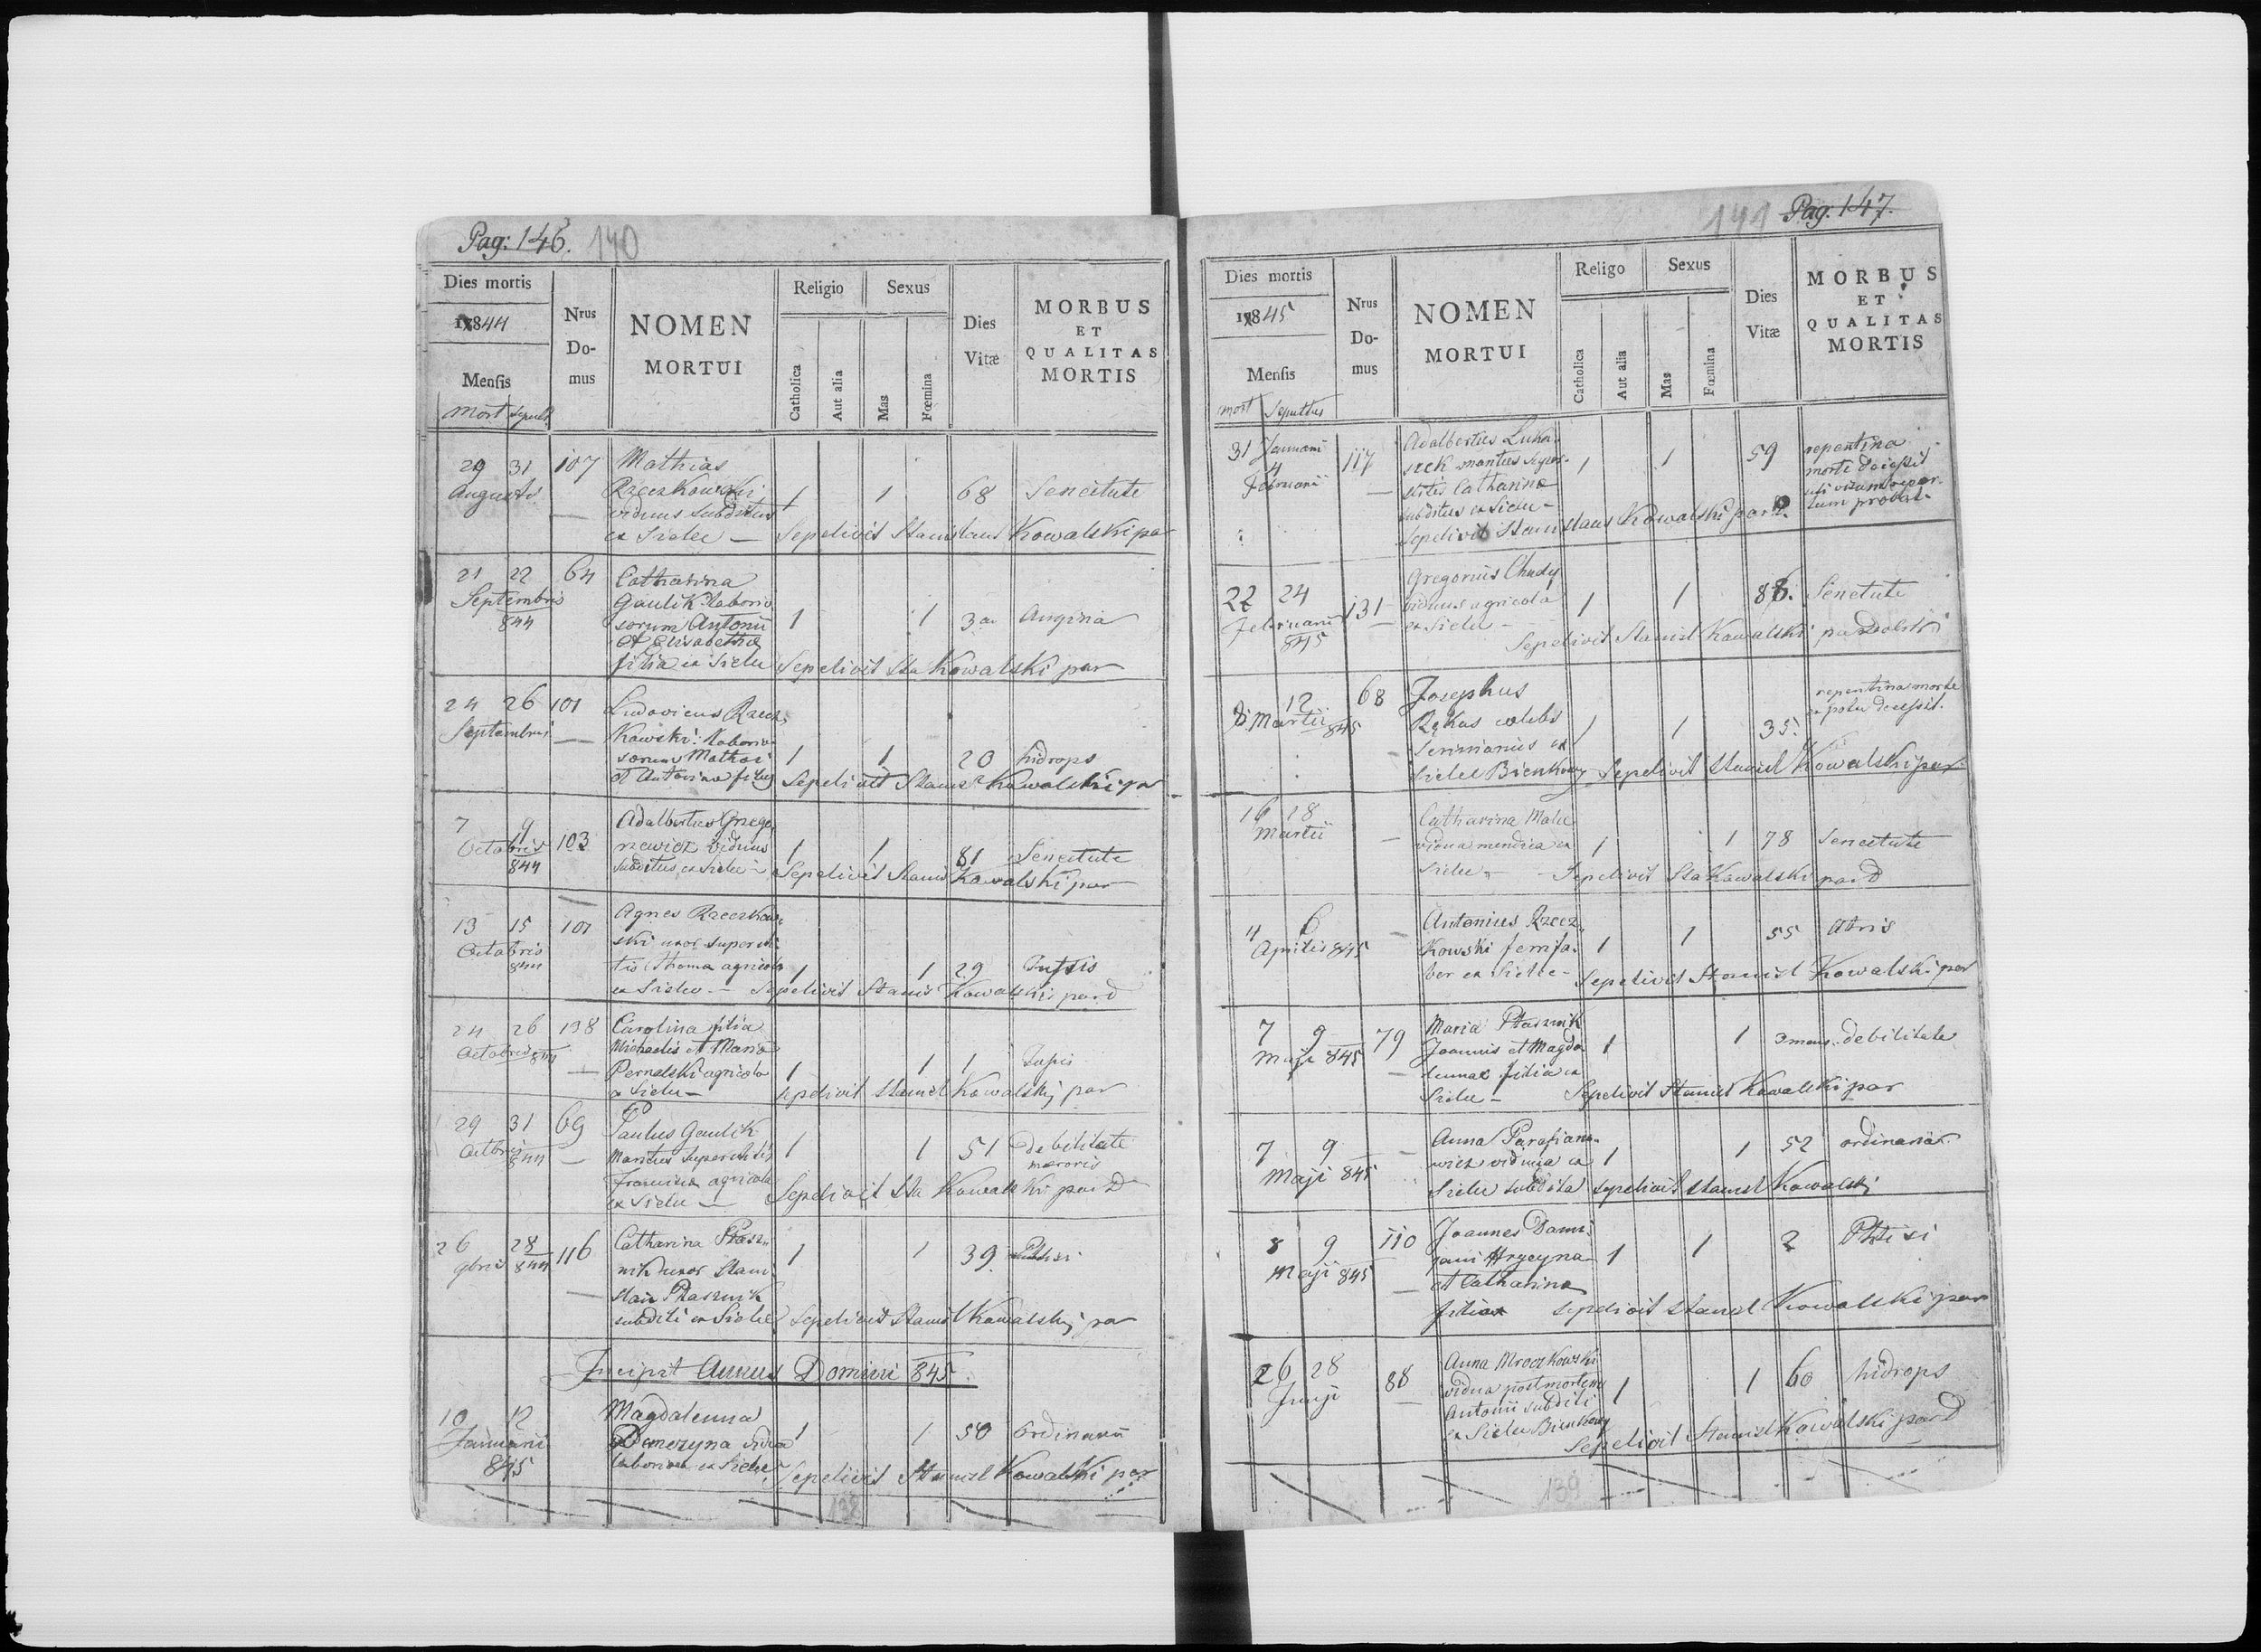 Pag: 146. 140
Dies mortis
1844
Mensis
mort sepult
Nrus Domus
NOMEN
MORTUI
Religio
Catholica
Aut alia
Sexus
Mas
Fœmina
Dies
Vitæ
MORBUS
ET
QUALITAS
MORTIS
29 31 107 Mathias
Augusti Rzeczkowski 1 1 68 Senectute
viduus subditus
ex Sielec – Sepelivit Stanislaus Kowalski par
21 22 64 Catharina
Septembris Gaulik laborio
844 sorum Antonii 1 1 3 an Angina
et Elisabetha
filia ex Sielec Sepelivit Sta Kowalski par
24 26 101 Ludovicus Rzecz
Septembris Kowski: laborio
sorum Mathai 1 1 20 hidrops
et Antonina filius Sepelivit Stanisl Kowalski par
7 9 Adalbertus Grzego
Octobris 103 rzewicz viduus 1 1 81 Senectute
844 subditus ex Sielec – Sepelivit Stanis Kowalski par
13 15 101 Agnes Rzeczkow
Octobris ski uxor supersti
844 tis Thoma agricola 1 1 29 Tussis
ex Sielec – Sepelivit Stanis Kowalski par d
24 26 138 Carolina filia
Octobris 844 Michaelis et Maria
Pernalski agricola 1 1 1
ex Sielec – sepelivit Stanisl Kowalskj par
29 31 69 Paulus Gaulik
Octbris 844 Maritus superstitis 1 1 51 debilitate
Francisca agricola mæroris
ex Sielec – Sepelivit Sta Kowalski par D
26 28 116 Catharina Ptasz
9bris 844 nik uxor Stani 1 1 39
slai Ptasznik
subditi ex Sielec Sepelivit Stanisl Kowalskj par
Incipit Annus Domini 845
10 12 Magdalenna
Januarii Demezyna vidua 1 1 50 Ordinaria
845 laboriosa ex Sielec Sepelivit Stanisl Kowalski par
138
141 Pag: 147.
Dies mortis
1845
Mensis
mort Sepultus
Nrus Domus
NOMEN
MORTUI
Religo
Catholica
Aut alia
Sexus
Mas
Fœmina
Dies
Vitæ
MORBUS
ET
QUALITAS
MORTIS
31 Januarii 117 Adalbertus Luka
4 sick maritus super 1 1 59 repentina
Februarii stitis Catharina morte decessit
subditus ex Sielec – uti visum repertum probat
Sepelivit Stanislaus Kowalski par
22 24 131 Gregorius Chudy
Februarii viduus agricola 1 1 86. Senectute
845 ex Sielec –
Sepelivit Stanisl Kowalski par
8 12 68 Josephus repentina morte
Martii 845 Rękas celebs 1 1 35. ex potu decessit.
ex
Sielec Bienkowy Sepelivit Stanisl Kowalski par
16 18 Catharina Malec
Martii vidua mendica ex 1 1 78 Senectute
Sielec – Sepelivit Sta Kowalski par D
4 6 Antonius Rzecz
Aprilis 845 Kowski ferrifa 1 1 55
ber ex Sielec – Sepelivit Stanisl Kowalski par
7 9 79 Maria Ptasznik
Maji 845 Joannis et Magda 1 1 3 mens. debilitate
lennæ filia ex
Sielec – Sepelivit Stanisl Kowalski par
7 9 Anna Parafiano
Maji 845 wicz vidua ex 1 1 52 ordinaria
Sielec subdita sepelivit Stanisl Kowalski
8 9 110 Joannes Dami
Maji 845 jani Hrycyna 1 1 2 Phtisi
et Catharina
filius sepelivit Stanisl Kowalski par
26 28 88 Anna Mroczkowski
Junji vidua post mortem 1 1 60 hidrops
Antonii subditi
ex Sielec Bienkowy
Sepelivit Stanisl Kowalski par D
139